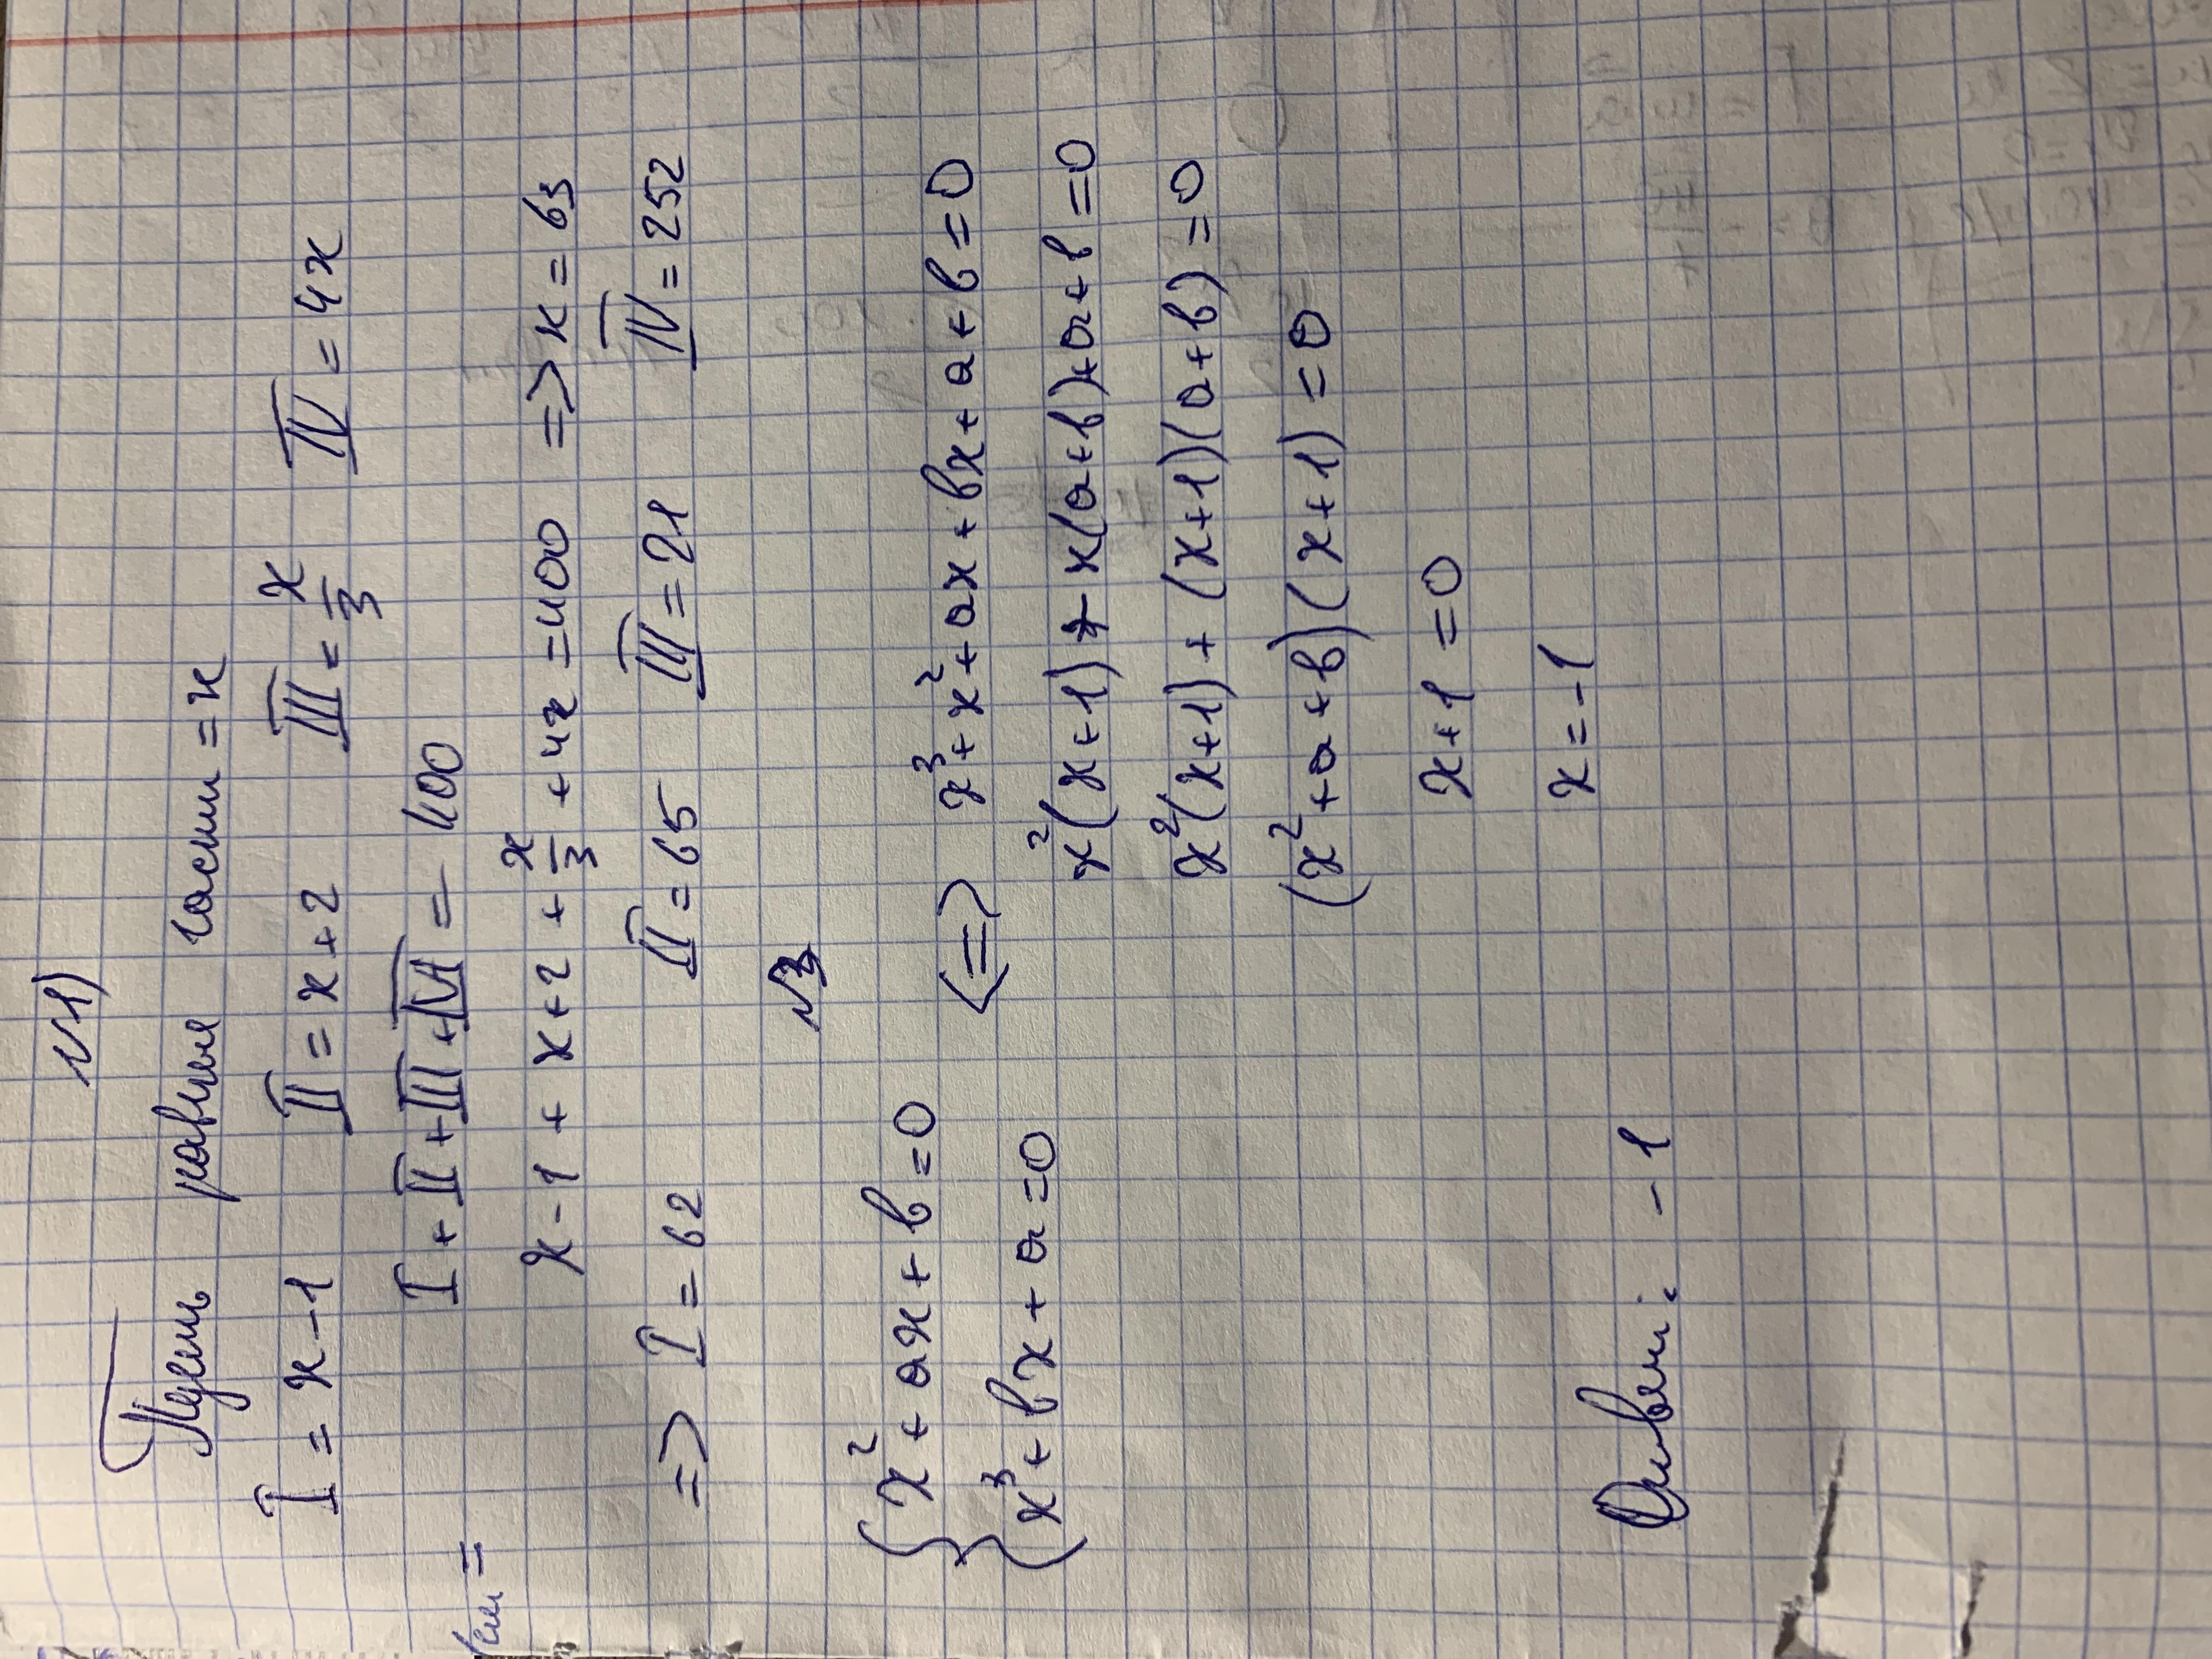 №1)
Пусть равные части = x
I = x - 1 II = x + 2 III = x/3 IV = 4x
I + II + III + IV = 400
x - 1 + x + 2 + x/3 + 4x = 400 => x = 63
=> I = 62 II = 65 III = 21 IV = 252
№3
{ x² + ax + b = 0
x³ + bx + a = 0
<=> x³ + x² + ax + bx + a + b = 0
x²(x + 1) + x(a + b) + a + b = 0
x²(x + 1) + (x + 1)(a + b) = 0
(x² + a + b)(x + 1) = 0
x + 1 = 0
x = -1
Ответ: -1